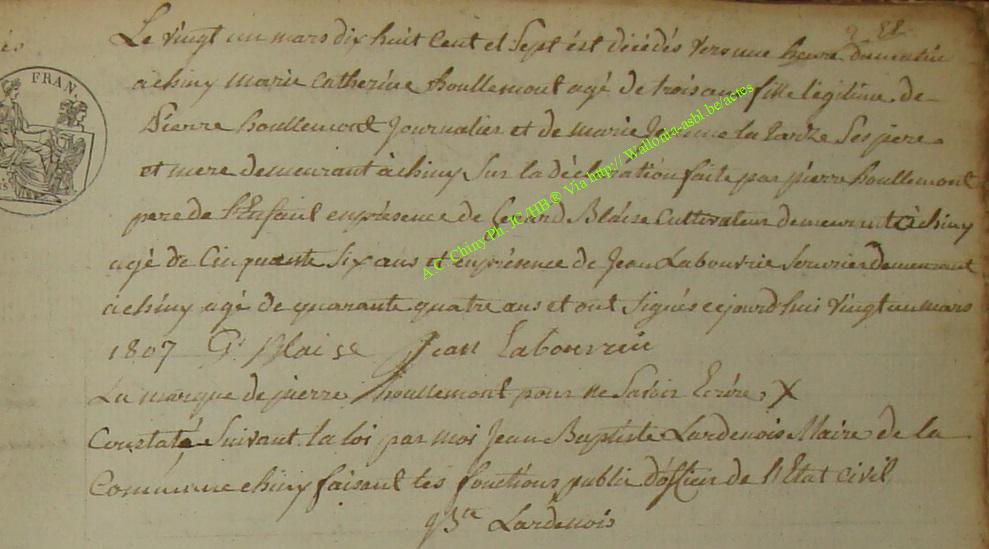 Le vingt un mars dix huit Cent et Sept ést décédés vers une heure du matin
a chiny marie catherine houllemont agé de trois ans fille légitime de
Pierre houllemont Journalier et de marie Jeanne la Ses pere
et mere demeurant à chiny Sur la déclération faite par pierre houllemont
pere de l'Enfant en présence de Gerard Blaise Cultivateur demeurant à chiny
agé de Cinquante Six ans et en présence de Jean Labouvrie Serurier demeurant
à chiny agé de quarante quatre ans et ont Signés cejourd'hui vingt un mars
1807 Gd Blaise Jean Labouvrie
La marque de pierre houllemont pour ne Savoir Ecrire X
Constaté Suivant la loi par moi Jean Baptiste Lardenois Maire de la
Commune chiny faisant les fonctions public d'officier de l'Etat Civil
Lardenois
FRAN.
A.C. Chiny Ph. JC/HB ® Via http:// Wallonia-asbl.be/actes